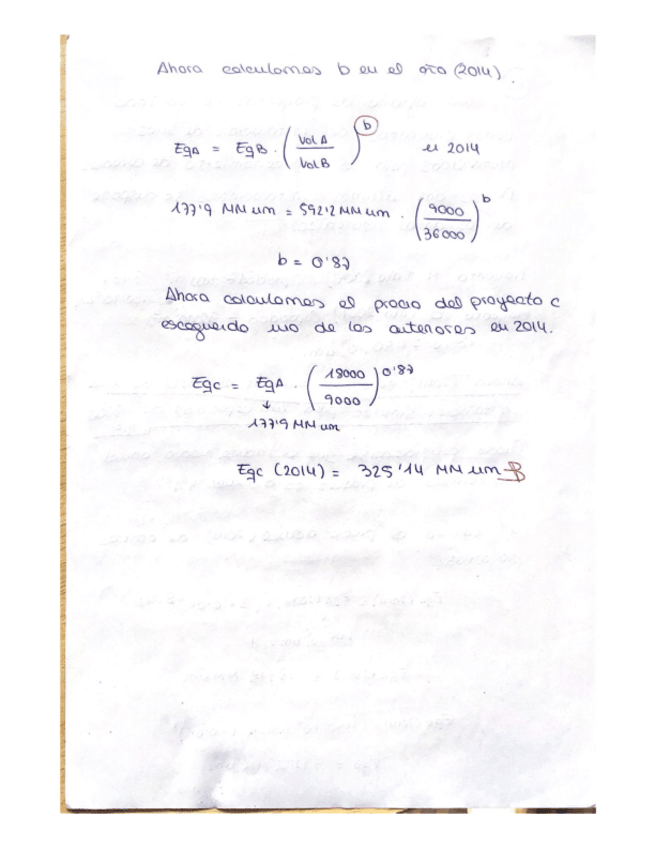 Ahora calculamos b en el año (2014).
EgA = EgB · (Vol A / Vol B)^b en 2014
177'9 MM um = 592'2 MM um · (9000 / 36000)^b
b = 0'87
Ahora calculamos el precio del proyecto C
escogiendo uno de los anteriores en 2014.
EgC = EgA · (18000 / 9000)^0'87
↓
177'9 MM um
EgC (2014) = 325'14 MM um